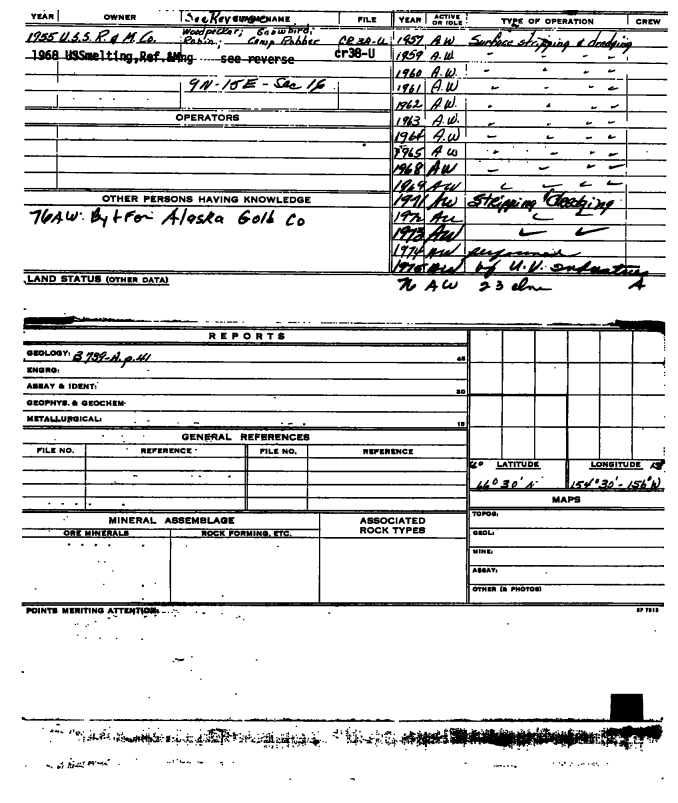 YEAR OWNER See Reverse NAME FILE YEAR ACTIVE OR IDLE TYPE OF OPERATION CREW
1955 U.S.S.R. & M. Co. Woodpecker; Snowbird; Robin; Camp Robber CR 38-U 1957 AW Surface stripping & dredging
1968 USSmelting,Ref.&Mng see reverse cr38-U 1959 A.W. " " " "
1960 A.W. " " " "
9N-15E-Sec 16 1961 A.W. " " " "
1962 A.W. " " " "
OPERATORS 1963 A.W. " " " "
1964 A.W " " " "
1965 A W " " " "
1968 AW " " " "
1969 AW " " " "
OTHER PERSONS HAVING KNOWLEDGE 1971 AW Stripping & dredging
76 AW: By & For Alaska Gold Co 1972 AW "
1973 AW " "
1974 AW performed
1975 AW by U.V. Industries
LAND STATUS (OTHER DATA) 76 AW 23 A
REPORTS
GEOLOGY: B 739-A, p.41 45
ENGRG:
ASSAY & IDENT: 30
GEOPHYS. & GEOCHEM:
METALLURGICAL: 15
GENERAL REFERENCES
FILE NO. REFERENCE FILE NO. REFERENCE
LATITUDE LONGITUDE
66°30'N 154°30'-156°W
MAPS
MINERAL ASSEMBLAGE ASSOCIATED ROCK TYPES TOPOG:
ORE MINERALS ROCK FORMING, ETC. GEOL:
MINE:
ASSAY:
OTHER (& PHOTOS)
POINTS MERITING ATTENTION: